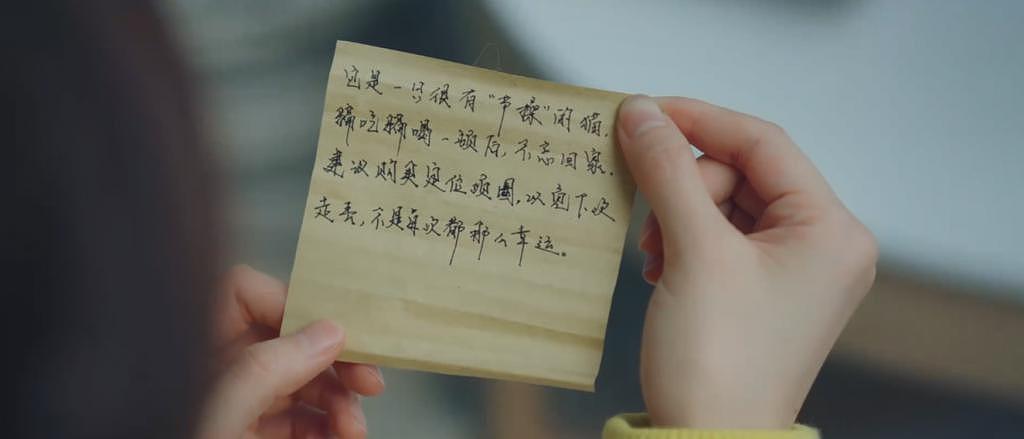 这是一只很有“节操”的猫，
骗吃骗喝一顿后，不忘回家。
建议购买定位项圈，以免下次
走丢，不是每次都那么幸运。